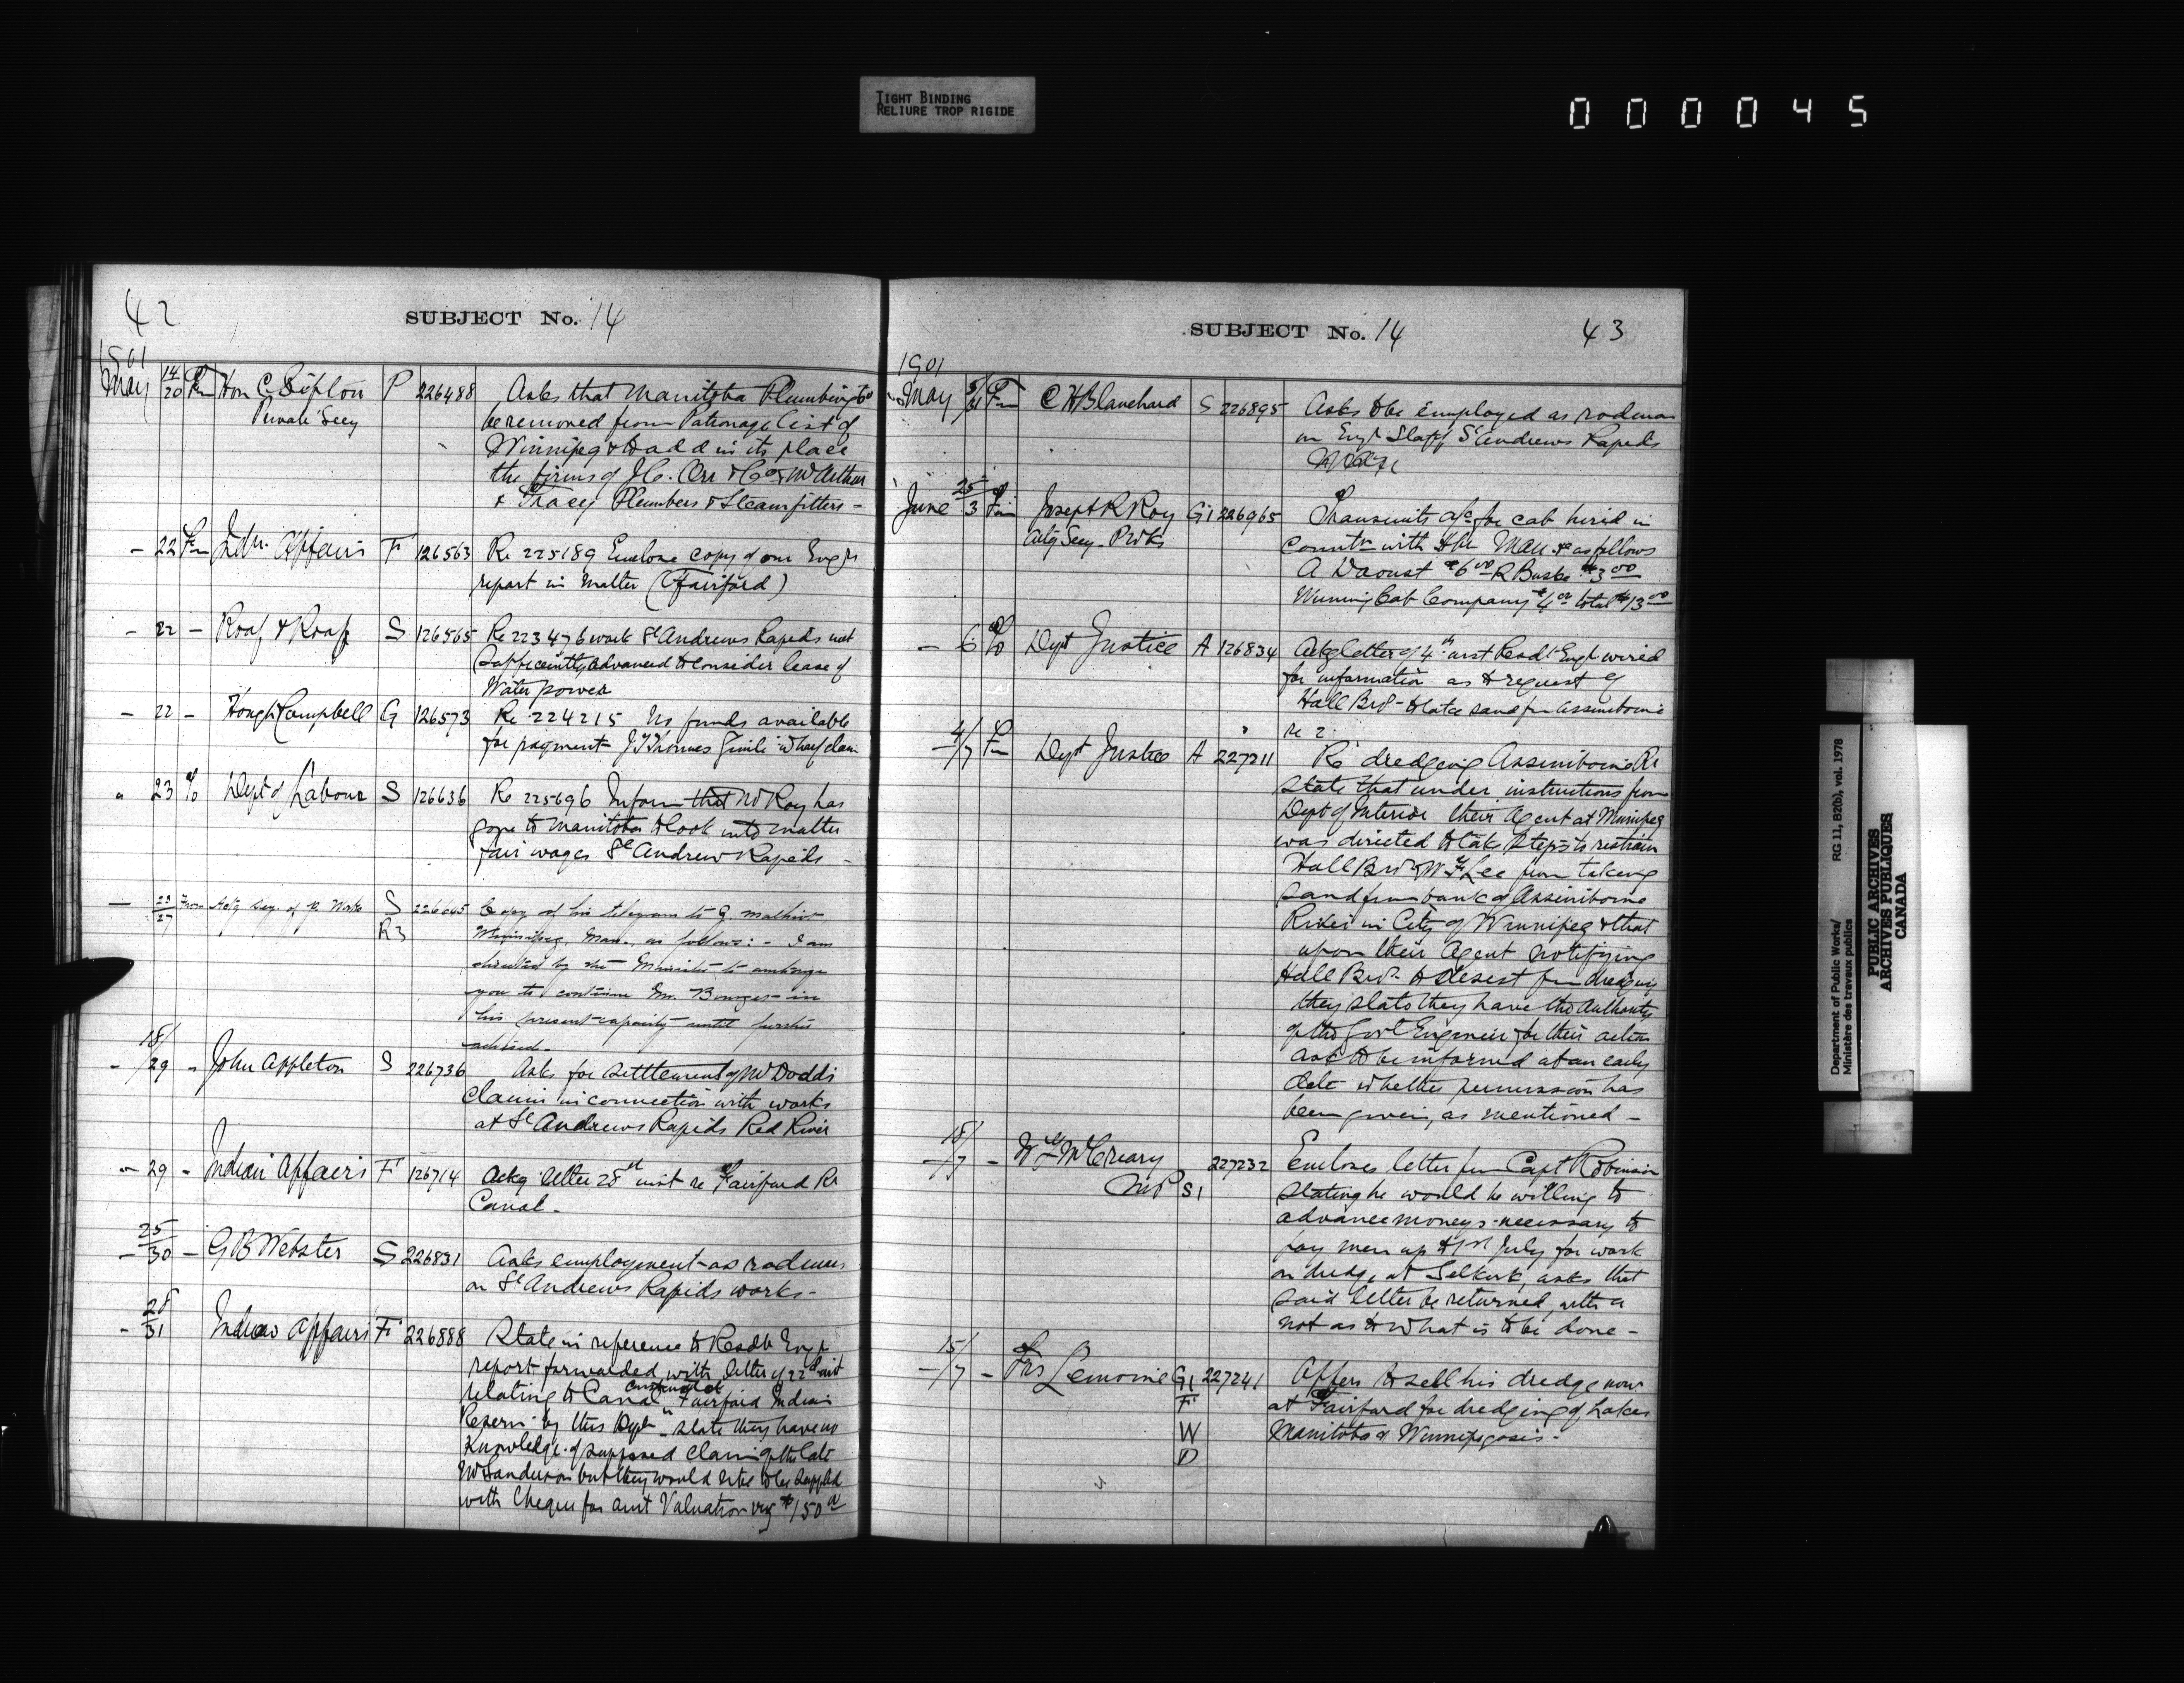 TIGHT BINDING
RELIURE TROP RIGIDE
000045
42
SUBJECT No. 14
1901
May 14/20 Fm Hon C Sifton P 226488 Asks that Manitoba Plumbing Co
Private Secy be removed from Patronage list of
Winnipeg & to add in its place
the firms of J.C. Orr & Co & McArthur
& Tracey Plumbers & Steamfitters -
- 22 Fm Indn. Affairs F 126563 Re 225189 Enclose copy of our Engrs
report in matter (Fairford)
- 22 - Roaf & Roaf S 126565 Re 223476 work St Andrews Rapids not
sufficiently advanced to consider lease of
Water power
- 22 - Hough & Campbell G 126573 Re 224215 No funds available
for payment J T Thomas Gimli wharf claim
" 23 To Dept of Labour S 126636 Re 225696 Inform that Mr Roy has
gone to Manitoba to look into matter
fair wages St Andrew Rapids -
- 23/27 From Actg Secy. of P. Works S 226645 Copy of his telegram to G.
R3 Winnipeg, Man., as follows: - I am
directed by the Minister to authorize
you to continue Mr. in
his present capacity until further
advised.
- 18/29 " John Appleton S 226736 Asks for settlement of Mr Dodds
claim in connection with works
at St Andrews Rapids Red River
- 29 - Indian Affairs F 126714 Ackg letter 28 inst re Fairford Rr
Canal -
25/30 - G B Webster S 226831 Asks employment as rodman
on St Andrews Rapids works -
- 28/31 Indian Affairs F 226888 State in reference to Resdt Engr
report forwarded with letter of 22d inst
relating to Canal constructed at Fairford Indian
Reserve by this Dept - state they have no
knowledge of supposed claim of the late
Mr Sanderson but they would like to be supplied
with Cheque for amt Valuation viz $150
SUBJECT No. 14
43
1901
May 5/31 Fm C H Blanchard S 226895 Asks to be employed as rodman
on Engr Staff St Andrews Rapids
June 25/3 Fm Joseph R Roy G1 226965 Transmits a/c for cab hired in
Actg Secy. P Wks conntn with the Man. as follows
A Daoust $6.00 R Buske $3.00
Cab Company $4.00 total $13.00
- 6 To Dept Justice A 126834 Ackg letter of 4th inst Resdt Engr wired
for information as to request of
Hall Bros - to take sand fm Assiniboine
re 2.
- 4/7 Fm Dept Justice A 227211 Re dredging Assiniboine Rr
state that under instructions from
Dept of Interior their Agent at Winnipeg
was directed to take steps to restrain
Hall Bros & W F Lee from taking
sand from bank of Assiniboine
River in City of Winnipeg & that
upon their Agent notifying
Hall Bros to desist fm dredging
they state they have the authority
of the Govt Engineer for their action
ask to be informed at an early
date whether permission has
been given, as mentioned -
- 18/7 - W F McCreary 227232 Encloses letter fm Capt Robinson
MP S1 stating he would be willing to
advance moneys necessary to
pay men up to 1st July for work
on dredge at Selkirk, asks that
said letter be returned, with a
not as to what is to be done -
- 15/7 - Frs Lemoine G1 227241 Offers to sell his dredge now
F at Fairford for dredging of Lakes
W Manitoba & Winnipegosis -
D
Department of Public Works/
Ministère des travaux publics
RG 11, B2(b), vol. 1978
PUBLIC ARCHIVES
ARCHIVES PUBLIQUES
CANADA